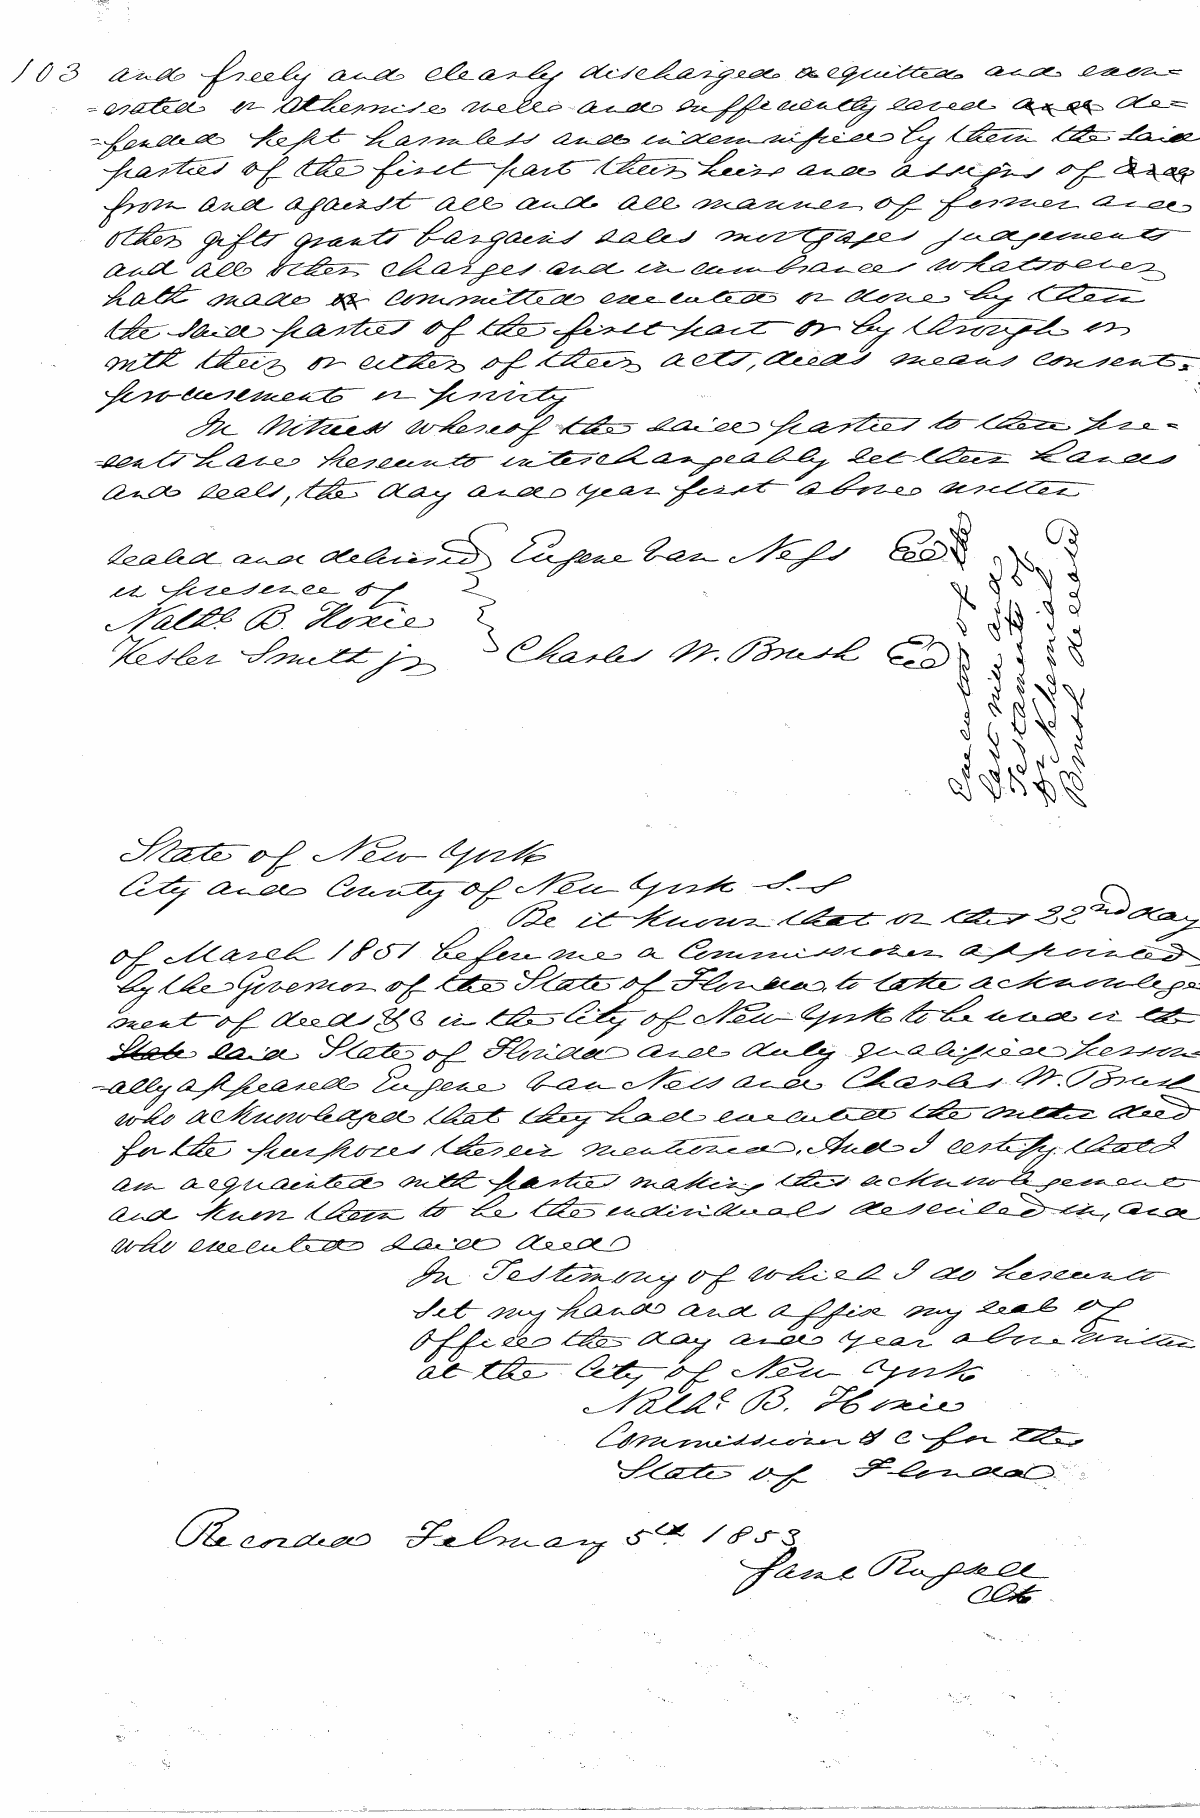 103 and freely and clearly discharged acquitted and exon=
=erated or otherwise well and sufficiently saved and de=
=fended kept harmless and indemnified by them the said
parties of the first part their heirs and assigns of and
from and against all and all manner of former and
other gifts grants bargains sales mortgages judgements
and all other charges and incumbrances whatsoever
hath made or committed executed or done by them
the said parties of the first part or by through or
with their or either of their acts, deeds means consent=
procurements or privity
In Witness whereof the said parties to these pre=
=sents have hereunto interchangeably set their hands
and seals, the day and year first above written
Sealed and delivered Eugene Van Ness
in presence of
Nathl B. Hoxie
Kesler Smith jr Charles W. Brush
Executors of the
last will and
Testaments of
Dr Nehemiah
Brush deceased
State of New York
City and County of New York S.S
Be it known that on this 22nd day
of March 1851 before me a Commissioner appointed
by the Governor of the State of Florida to take acknowlege
ment of deeds &C in the City of New York to be used in the
State said State of Florida and duly qualified person
=ally appeared Eugene Van Ness and Charles W. Brush
who acknowledged that they had executed the within deed
for the purposes therein mentioned. And I certify that I
am acquainted with parties making this acknowlegement
and know them to be the individuals described in, and
who executed said deed
In Testimony of which I do hereunto
set my hand and affix my seal of
office the day and year above written
at the City of New York
Nathl B. Hoxie
Commissioner &c for the
State of Florida
Recorded February 5th 1853
Clk